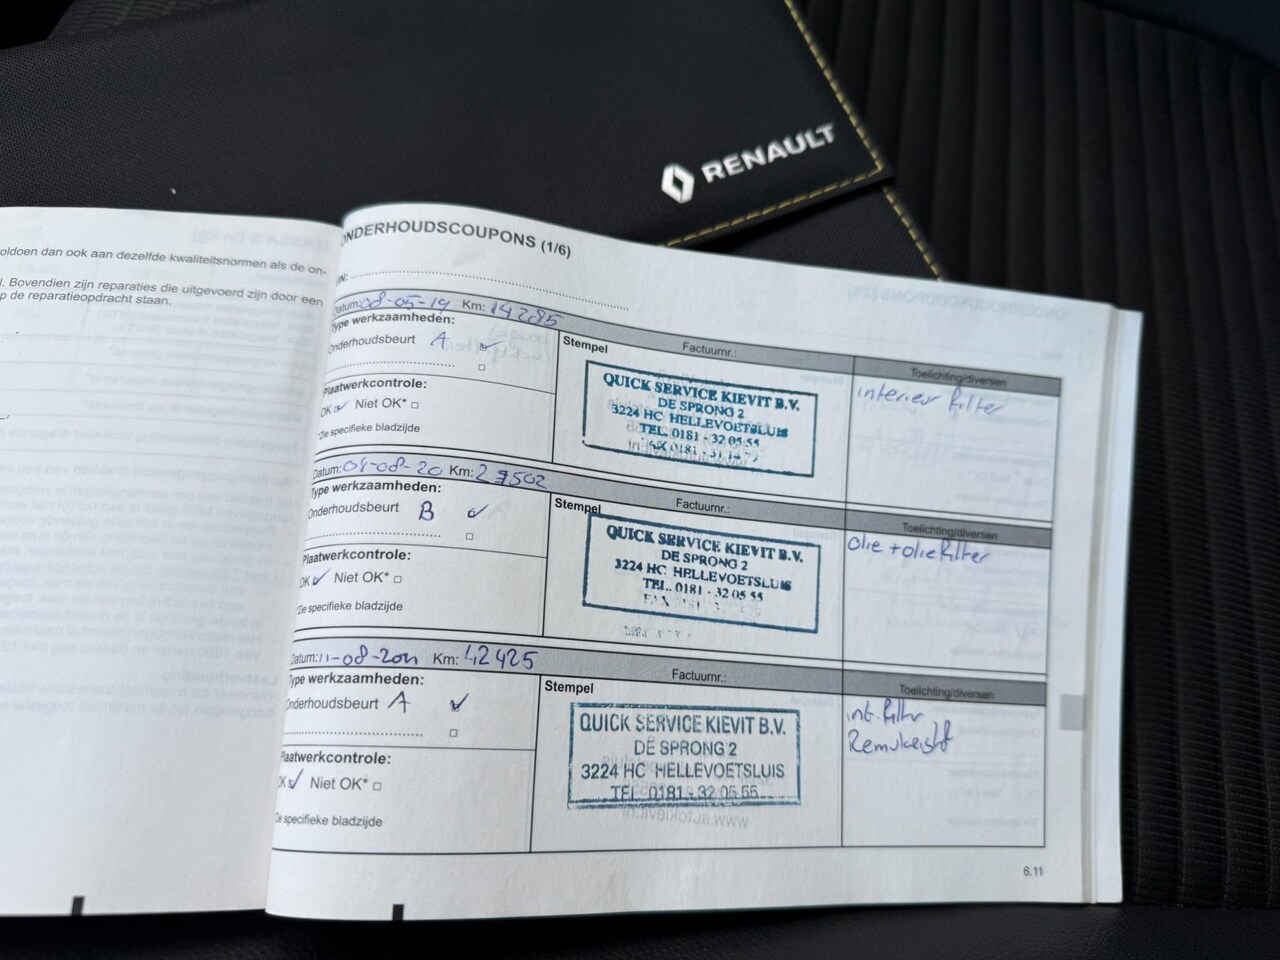 RENAULT
oldoen dan ook aan dezelfde kwaliteitsnormen als de on-
l. Bovendien zijn reparaties die uitgevoerd zijn door een
p de reparatieopdracht staan.
ONDERHOUDSCOUPONS (1/6)
Datum: 08-05-19 Km: 14285
Type werkzaamheden:
Onderhoudsbeurt A
Plaatwerkcontrole:
OK Niet OK*
*Zie specifieke bladzijde
Stempel
Factuurnr.:
QUICK SERVICE KIEVIT B.V.
DE SPRONG 2
3224 HC HELLEVOETSLUIS
TEL. 0181 - 32 05 55
Toelichting/diversen
interieur filter
Datum: 04-08-20 Km: 27502
Type werkzaamheden:
Onderhoudsbeurt B
Plaatwerkcontrole:
OK Niet OK*
*Zie specifieke bladzijde
Stempel
Factuurnr.:
QUICK SERVICE KIEVIT B.V.
DE SPRONG 2
3224 HC HELLEVOETSLUIS
TEL. 0181 - 32 05 55
FAX 0181
Toelichting/diversen
Olie + olie filter
Datum: 11-08-2021 Km: 42425
Type werkzaamheden:
Onderhoudsbeurt A
Plaatwerkcontrole:
OK Niet OK*
Zie specifieke bladzijde
Stempel
Factuurnr.:
QUICK SERVICE KIEVIT B.V.
DE SPRONG 2
3224 HC HELLEVOETSLUIS
TEL. 0181 - 32 05 55
www.autokievit.nl
Toelichting/diversen
int. filter
Remvloeistof
6.11